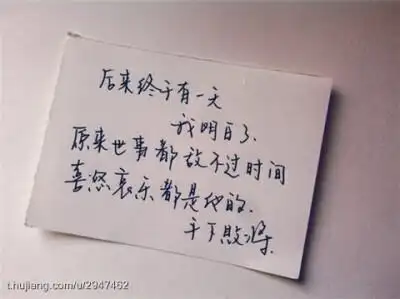 后来终于有一天
我明白了.
原来世事都敌不过时间
喜怒哀乐都是他的.
手下败将.
t.hujiang.com/u/2947462